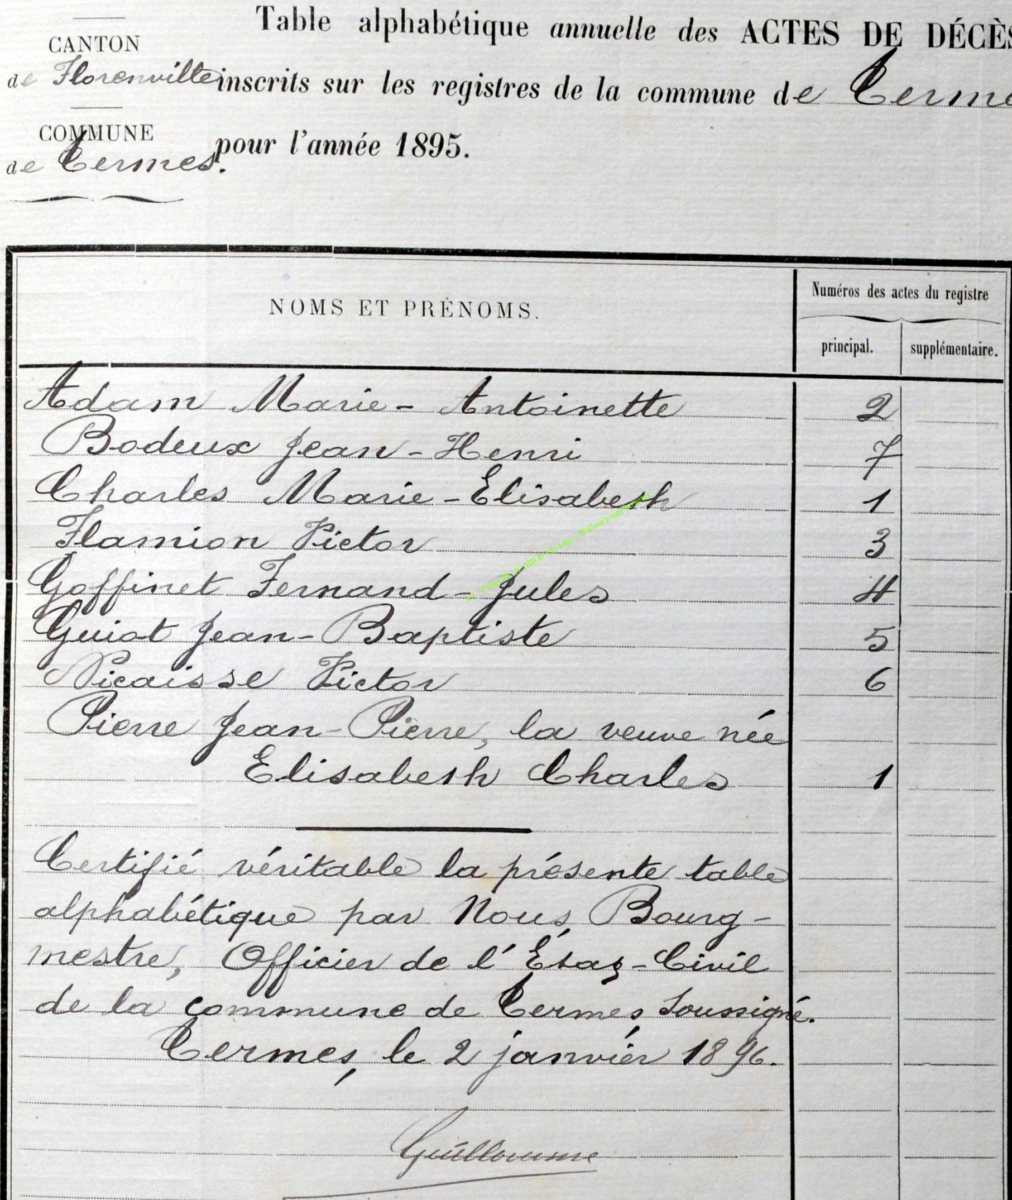 CANTON
de Florenville
COMMUNE
de Termes.
Table alphabétique annuelle des ACTES DE DÉCÈS
inscrits sur les registres de la commune de Terme
pour l'année 1895.
NOMS ET PRÉNOMS.
Numéros des actes du registre
principal. supplémentaire.
Adam Marie-Antoinette 2
Bodeux Jean-Henri 7
Charles Marie-Elisabeth 1
Flamion Victor 3
Goffinet Fernand-Jules 4
Guiot Jean-Baptiste 5
Picaisse Victor 6
Pierre Jean-Pierre, la veuve née
Elisabeth Charles 1
Certifié véritable la présente table
alphabétique par Nous, Bourg-
mestre, Officier de l'État-Civil
de la commune de Termes soussigné.
Termes, le 2 janvier 1896.
Guillaume